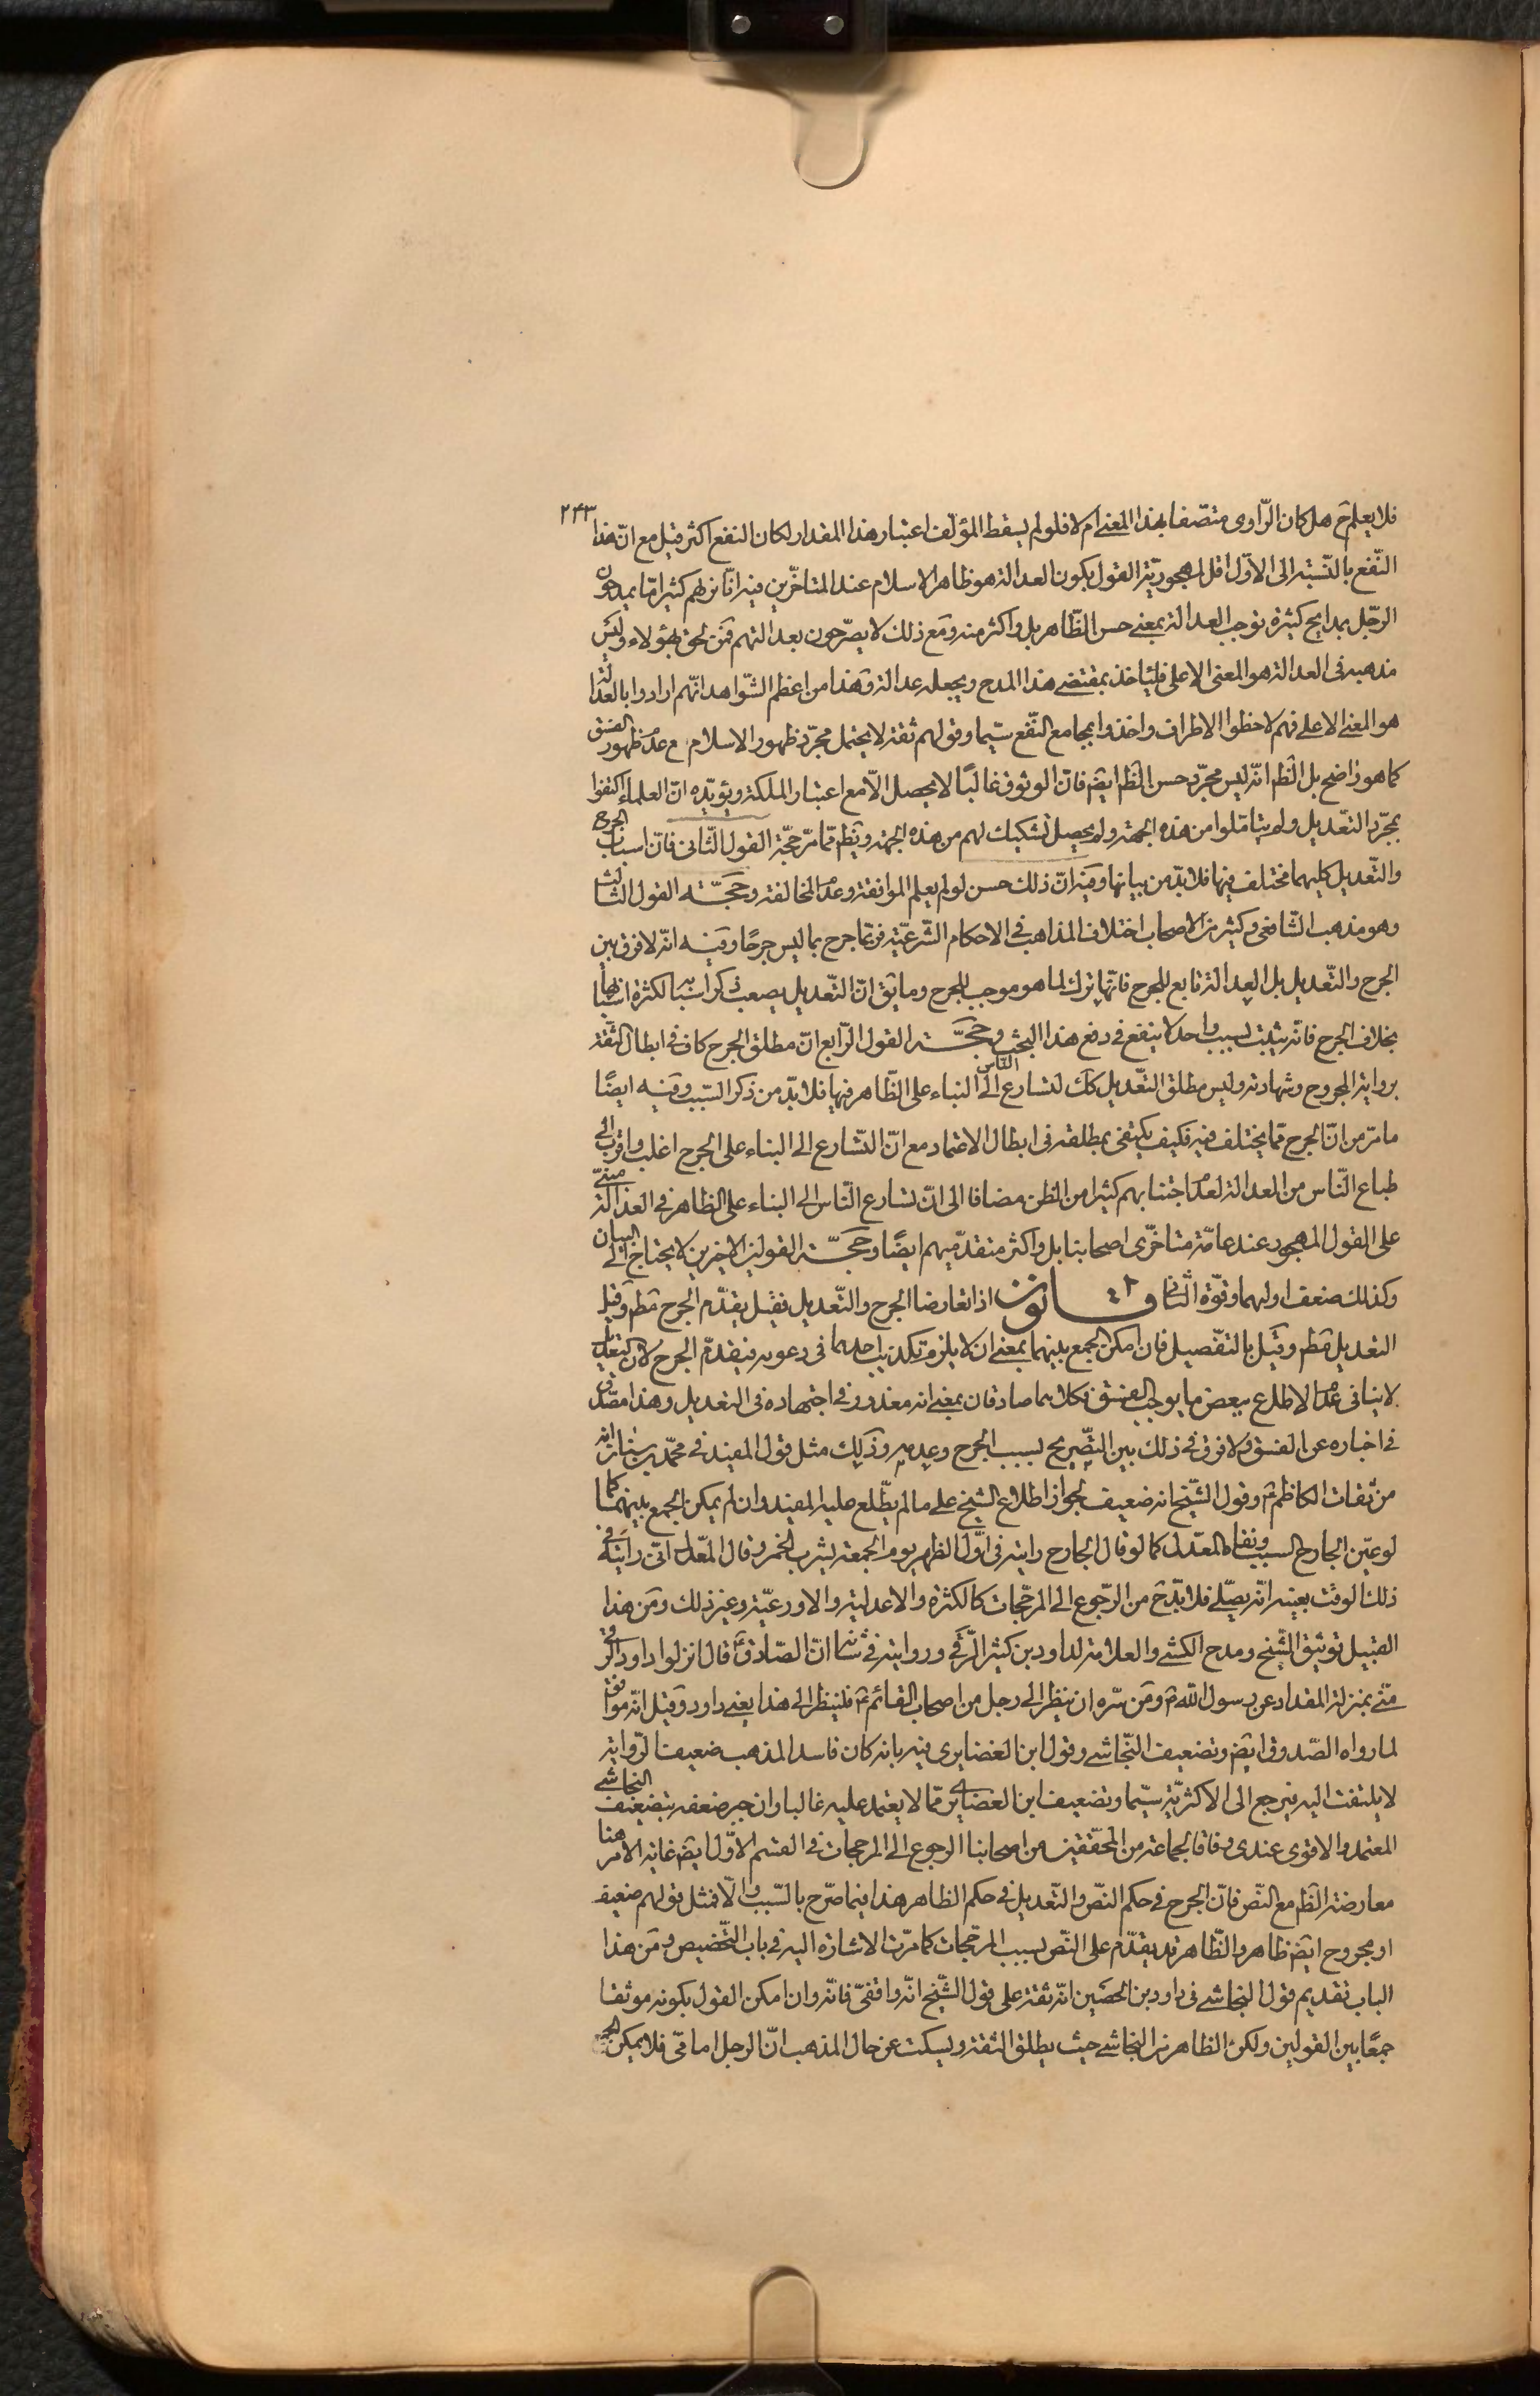 ۲۴۳
فلا يعلم ح هل كان الرّاوى متصّفا بهذا المعنى ام لا فلو لم يسقط المؤلّف اعتبار هذا المقدار لكان النفع اكثر قيل مع انّ هذا
النّفع بالنّسبة الى الاوّل اقل لمهجوريّة القول بكون العدالة هو ظاهر الاسلام عند المتاخّرين فيه انّا نريهم كثيرا مّا يمدحون
الرجّل بمدايح كثيرة توجب العدالة بمعنى حسن الظّاهر بل واكثر منه ومع ذلك لا يصرّحون بعدالتهم فمن لحق بهؤلاء وليس
مذهبه فى العدالة هو المعنى الاعلى فلياخذ بمقتضى هذا المدح ويجعله عدالة وهذا من اعظم الشّواهد انّهم ارادوا بالعدالة
هو المعنى الاعلى فهم لاحظوا الاطراف واخذوا بمجامع النّفع سيّما وقولهم ثقة لا يحتمل مجرّد ظهور الاسلام مع عدم ظهور الفسق
كما هو واضح بل الظم انّه ليس مجرّد حسن الظم ايضم فانّ الوثوق غالبًا لا يحصل الّا مع اعتبار الملكة ويؤيّده انّ العلماء اكتفوا
بمجرّد التعّديل ولم يتامّلوا من هذه الجهة ولم يحصل تشكيك لهم من هذه الجهة ويظم ممّا مرّ حجّة القول الثّانى فانّ اسباب الجرح
والتّعديل كليهما مختلف فيها فلا بدّ من بيانها وفيه انّ ذلك حسن لو لم يعلم الموافقة وعدم المخالفة وحجّــة القول الثالث
وهو مذهب الشّافعى وكثير من الاصحاب اختلاف المذاهب فى الاحكام الشّرعيّة فربّما جرح بما ليس جرحًا وفيــه انّه لا فرق بين
الجرح والتّعديل بل العدالة تابع للجرح فانّها ترك لما هو موجب للجرح وما يق انّ التّعديل يصعب ذكر اسبابه لكثرة اسبابها
بخلاف الجرح فانّه يثبت بسبب واحد لا ينفع فى دفع هذا البحث وحجّــة القول الرّابع انّ مطلق الجرح كاف فى ابطال الثّقة
برواية المجروح وشهادته وليس مطلق التعّديل كك لتسارع النّاس الى البناء على الظّاهر فيها فلا بدّ من ذكر السّبب وفيــه ايضًا
ما مرّ من انّ الجرح ممّا يختلف فيه فكيف يكتفى بمطلقه فى ابطال الاعتماد مع انّ التّسارع الى البناء على الجرح اغلب واقرب الى
طباع النّاس من العدالة لعدم اجتنابهم كثيرا من الظن مضافا الى انّ تسارع النّاس الى البناء على الظاهر فى العدالة مبنىّ
على القول المهجور عند عامّة متاخّرى اصحابنا بل واكثر متقدّميهم ايضًا وحجّــة القولين الاخيرين لا يحتاج الى البيان
وكذلك ضعف اولهما وقوّة الثّانى قــانون اذا تعارضا الجرح والتّعديل فقيل يقدّم الجرح مطم وقيل
التعديل مطم وقيل بالتفّصيل فان امكن الجمع بينهما بمعنى ان لا يلزم تكذيب احدهما فى دعويه فيقدّم الجرح لان التعديل
لا ينافى عدم الاطلاع ببعض ما يوجب الفسق فكلاهما صادقان بمعنى انه معذور فى اجتهاده فى التعديل وهذا مصدّق
فى اخباره عن الفسق ولا فرق فى ذلك بين التصّريح بسبب الجرح وعدمه وذلك مثل قول المفيد فى محمّد بن سنان انه
من ثقات الكاظم ع وقول الشّيخ انه ضعيف لجواز اطلاع الشيخ على ما لم يطّلع عليه المفيد وان لم يمكن الجمع بينهما كما
لو عيّن الجارح السبب ونفاه المعدّل كما لو قال الجارح رايته فى اوّل الظهر يوم الجمعة يشرب الخمر وقال المعّدل انّى رايته فى
ذلك الوقت بعينه انّه يصلّى فلا بدّ ح من الرّجوع الى المرجّحات كالكثرة والاعدلية والاورعيّة وغير ذلك ومن هذا
القبيل توثيق الشّيخ ومدح الكشى والعلامة لداود بن كثير الرّقى وروايته فى شانه انّ الصّادق ع قال انزلوا داود الرقى
منّى بمنزلة المقداد عن رسول اللّه ص ومن سّره ان ينظر الى رجل من اصحاب القائم ع فلينظر الى هذا يعنى داود وقيل انّه موافق
لما رواه الصّدوق ايضم وتضعيف النّجاشى وقول ابن الغضايرى فيه بانه كان فاسد المذهب ضعيف الرّواية
لا يلتفت اليه فيرجع الى الاكثريّة سيّما وتضعيف ابن الغضايرى ممّا لا يعتمد عليه غالبا وان جبر ضعفه بتضعيف النجاشى
المعتمد والاقوى عندى وفاقا لجماعة من المحقّقين من اصحابنا الرجوع الى المرجحات فى القسم الاوّل ايضم غاية الامر هنا
معارضة الظم مع النّص فانّ الجرح فى حكم النصّ والتّعديل فى حكم الظاهر هذا فيما صرّح بالسّبب والّا فمثل قولهم ضعيف
او مجروح ايضم ظاهر والظّاهر قد يقدّم على النصّ بسبب المرجّحات كما مرّت الاشارة اليه فى باب التّخصيص ومن هذا
الباب تقديم قول النجاشى فى داود بن الحصين انّه ثقة على قول الشّيخ انّه واقفىّ فانّه وان امكن القول بكونه موثقا
جمعًا بين القولين ولكن الظاهر من النجاشى حيث يطلق الثقة ويسكت عن حال المذهب انّ الرجل امامّى فلا يمكن الجمع